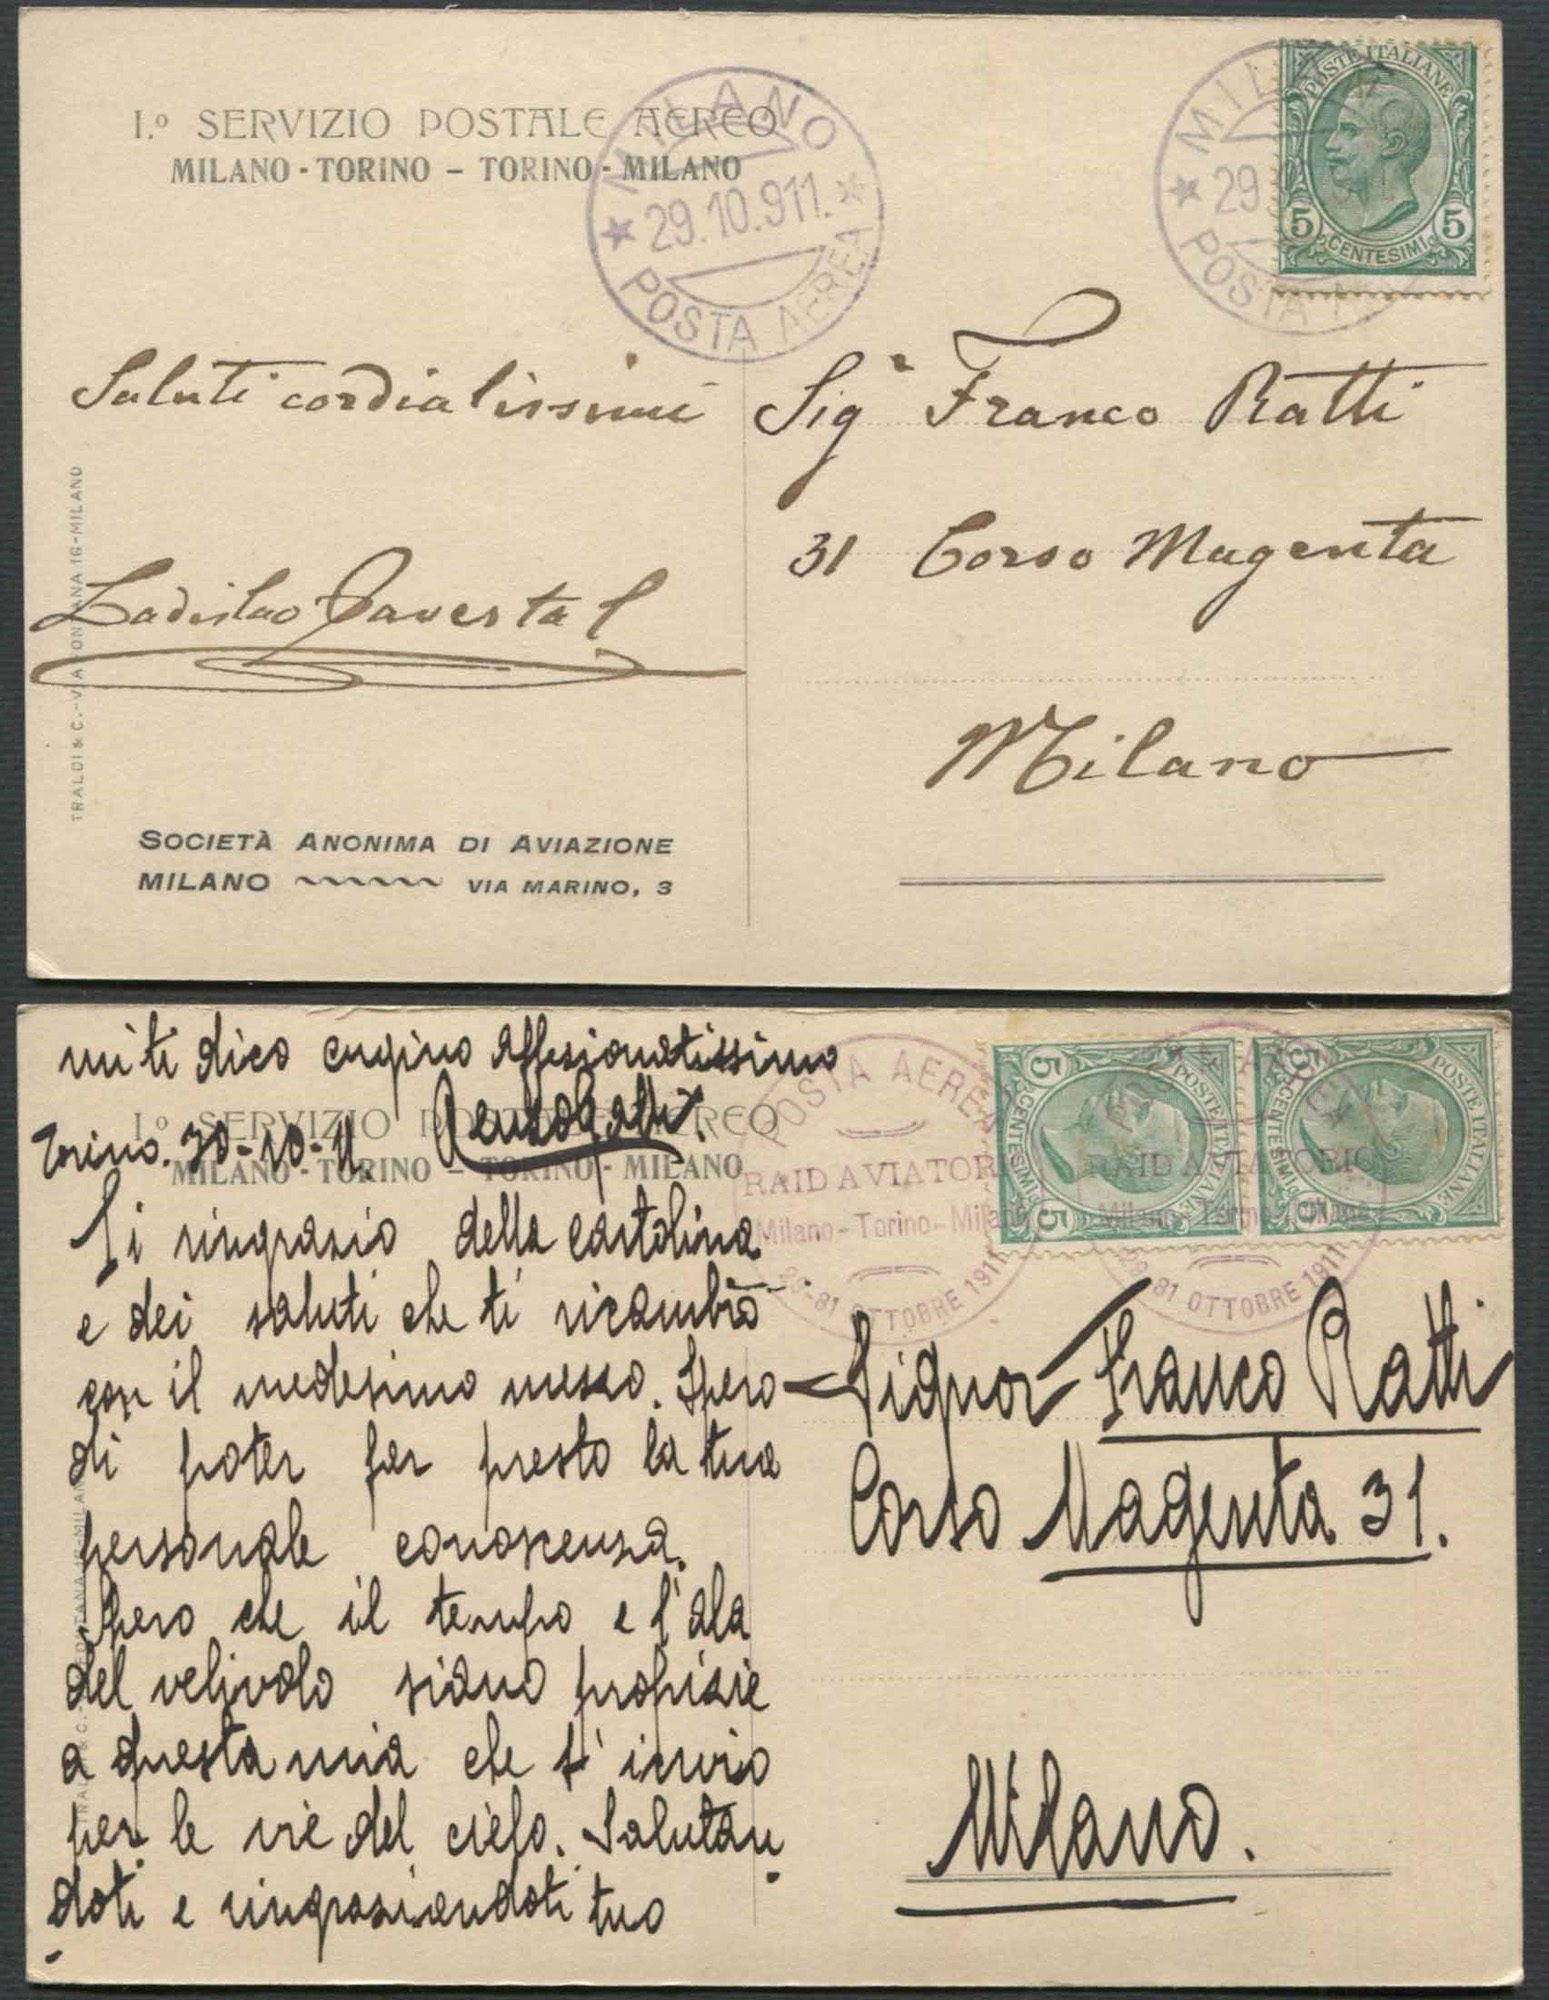 I.º SERVIZIO POSTALE AEREO
MILANO - TORINO – TORINO - MILANO
MILANO
29.10.911.
POSTA AEREA
MIL
29
POSTA A
POSTE ITALIANE
5 5
CENTESIMI
Saluti cordialissimi
Ladislao
Sigʳ Franco Ratti
31 Corso Magenta
Milano
TRALDI & C. - VIA FONTANA 16 - MILANO
SOCIETÀ ANONIMA DI AVIAZIONE
MILANO VIA MARINO, 3
mi ti dico cugino affezionatissimo
I.º SERVIZIO POSTALE AEREO
Torino. 30-10-11
MILANO - TORINO – TORINO - MILANO
Ti ringrazio della cartolina
e dei saluti che ti ricambio
con il medesimo mezzo. Spero
di poter far presto la tua
personale conoscenza.
Spero che il tempo e l'ala
del velivolo siano propizie
a questa mia che ti invio
per le vie del cielo. Salutan
doti e ringraziandoti tuo
POSTA AEREA
RAID AVIATORIO
Milano - Torino - Milano
29-31 OTTOBRE 1911
RAID AVIATORIO
Milano - Torino - Milano
29-31 OTTOBRE 1911
POSTE ITALIANE
5 5
CENTESIMI
POSTE ITALIANE
5 5
CENTESIMI
Signor Franco Ratti
Corso Magenta 31.
Milano.